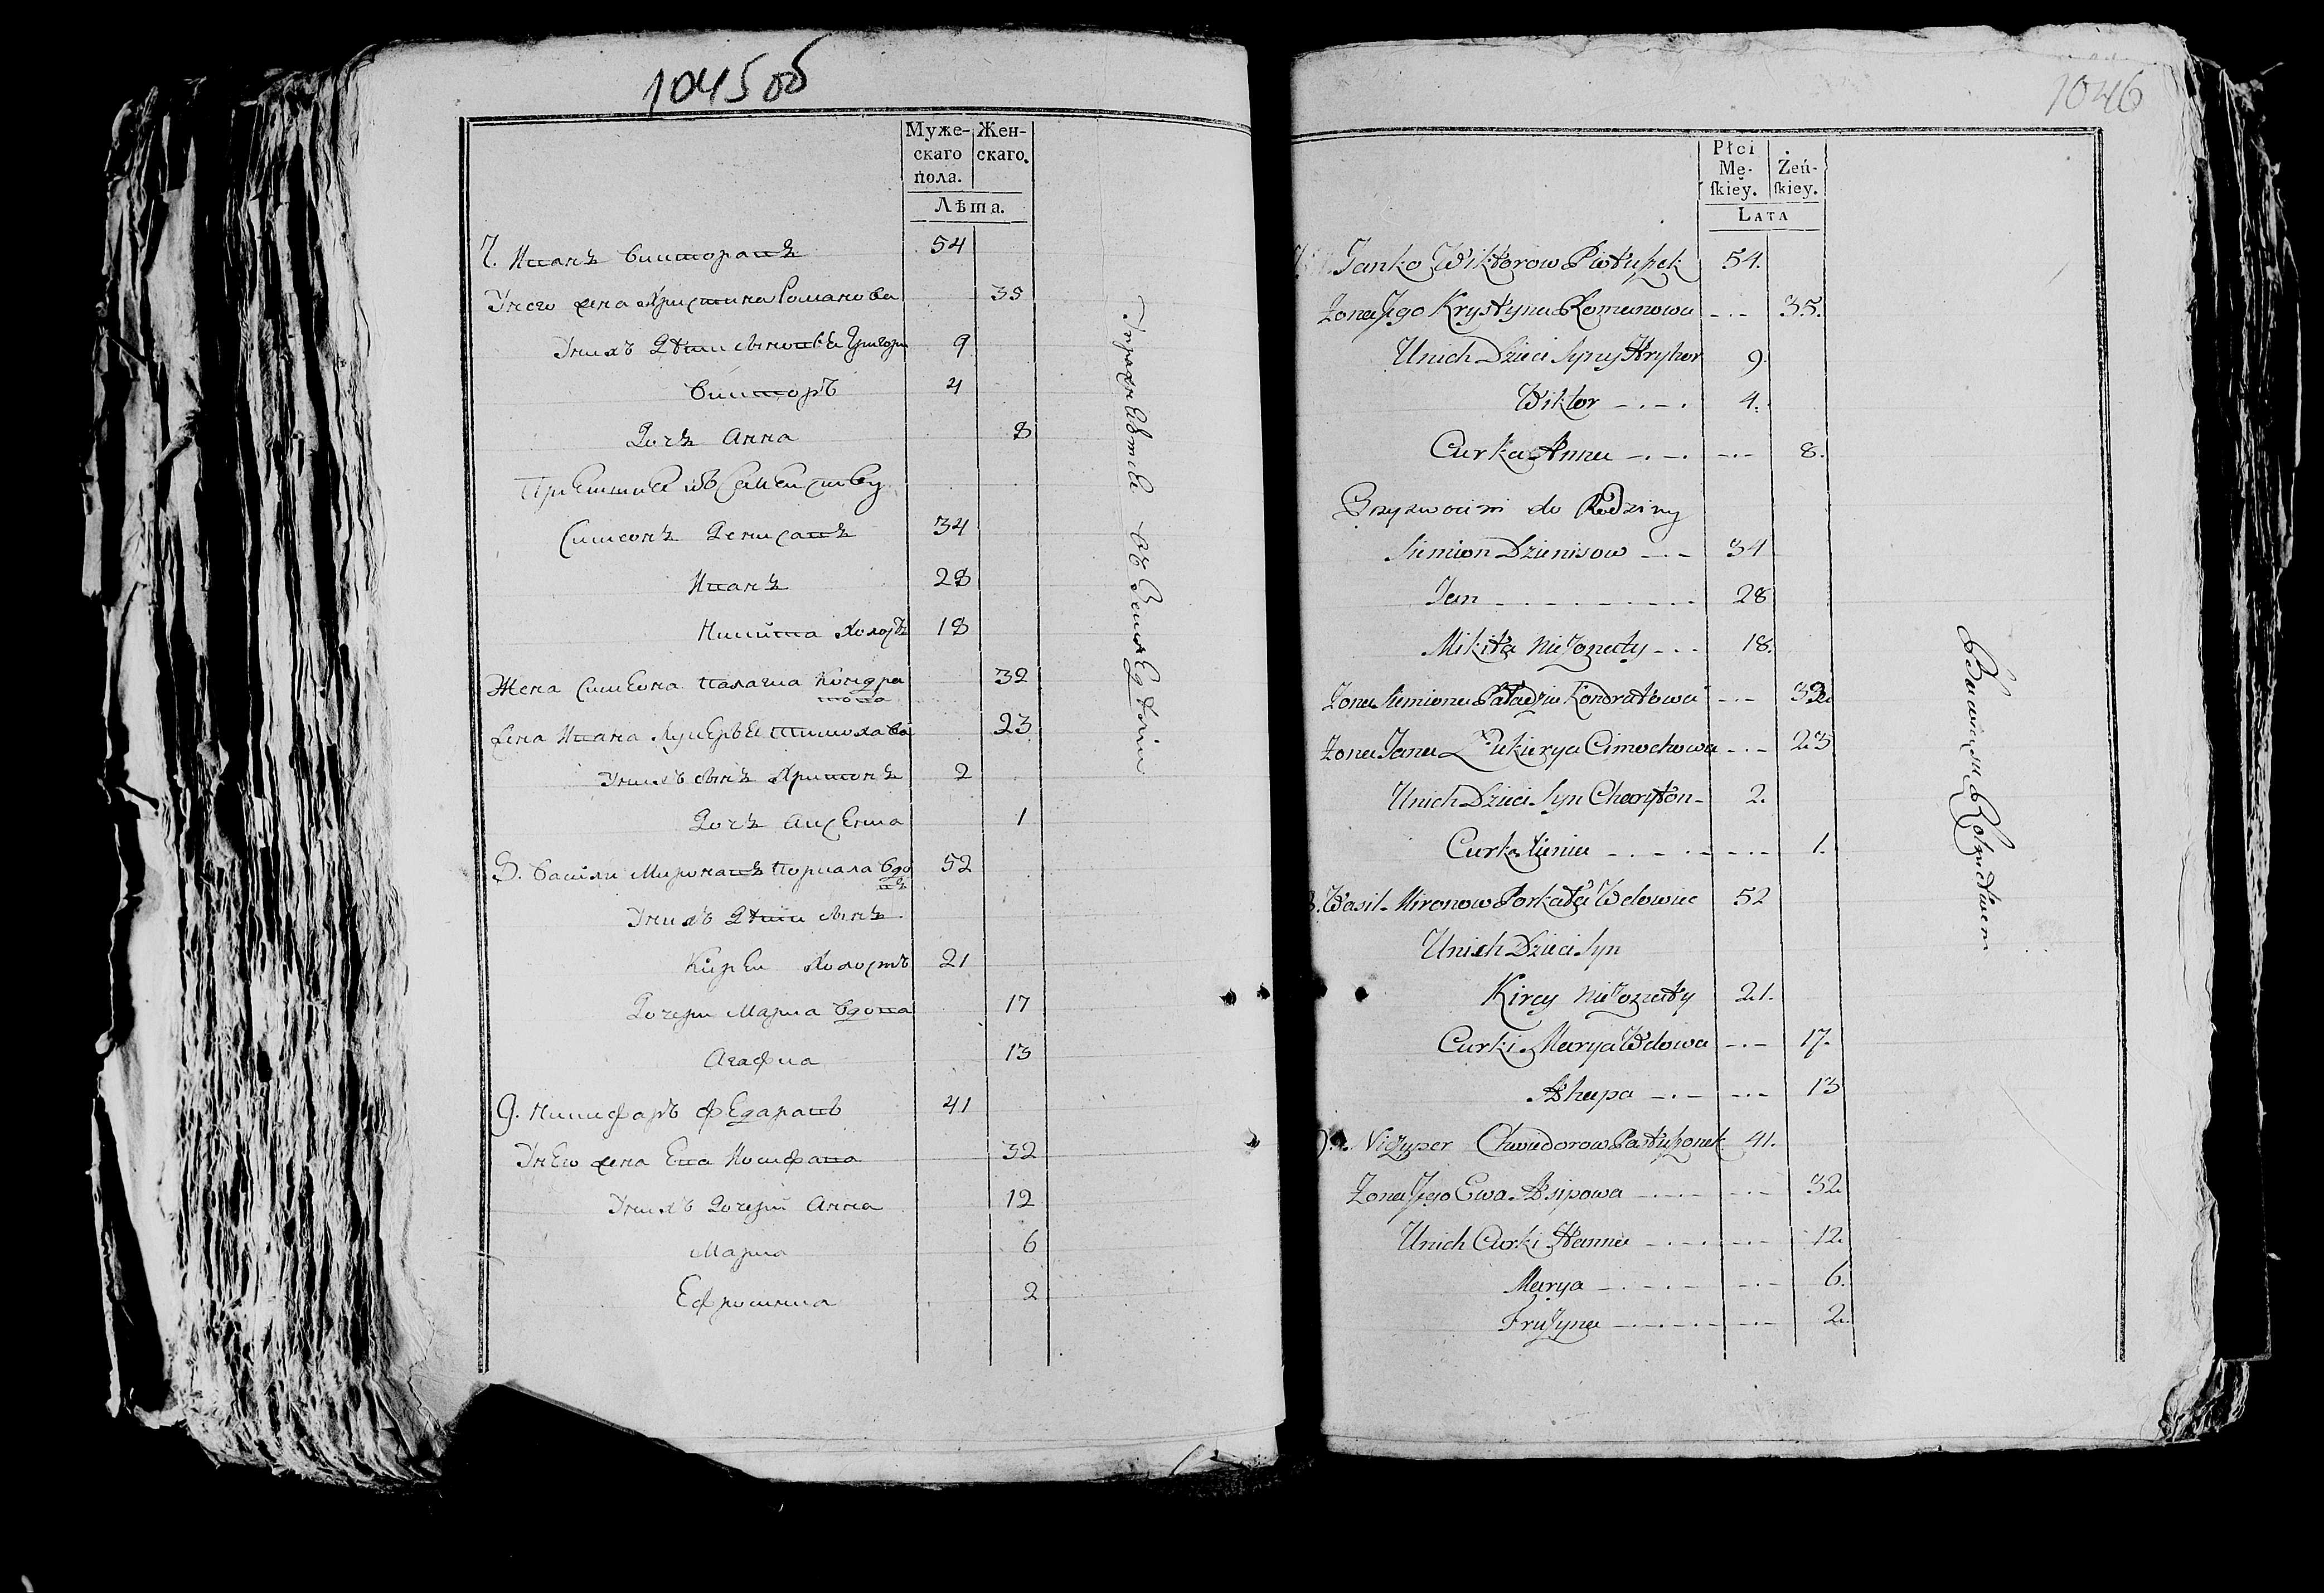 1045об
Муже- Жен-
скаго скаго.
пола.
Лѣта.
7. Иванъ Викторавъ 54
Унего жена Христина Романова 35
Унихъ Дѣти сыновьи Григори 9
Викторъ 4
Дочъ Анна 8
Приемшие въ семейству
Симеонъ Денисавъ 34
Иванъ 28
Никита Холостъ 18
Жена Симеона Палагиа Кондра
това 32
Жена Ивана Лукерья Тимохава 23
Унихъ сынъ Хритонъ 2
Дочъ Аксенья 1
8. Васили Миронавъ Поркала Вдо
въ 52
Унихъ Дѣти сынъ
Кирей Холостъ 21
Дочери Мариа Вдова 17
Агафиа 13
9. Никифаръ Федаравъ 41
Унего жена Ева Иосифава 32
Унихъ Дочери Анна 12
Мариа 6
Ефросиниа 2
1046
Płci
Mę- Żeń-
skiey. skiey.
Lata
7. Janko Wiktorow 54.
Zona Jego Krystyna Romanowa 35.
Unich Dzieci Syny Hryhor 9.
Wiktor 4.
Curka Anna 8.
do Rodziny
Siemion Dzienisow 34
Jan 28
Mikita Nieżonaty 18.
Zona Siemiona Pałazia Kondratowa 32.
Zona Jana Łukierya Cimochowa 23
Unich Dzieci Syn Charyton 2.
Curka 1.
8. Wasil Mironow Porkała Wdowiec 52
Unich Dzieci Syn
Kirey Nieżonaty 21.
Curki Marya Wdowa 17.
Ahapa 13
9. Chwiedorow 41.
Zona Jego Ewa Asipowa 32.
Unich Curki Hanna 12.
Marya 6.
Fruzyna 2.